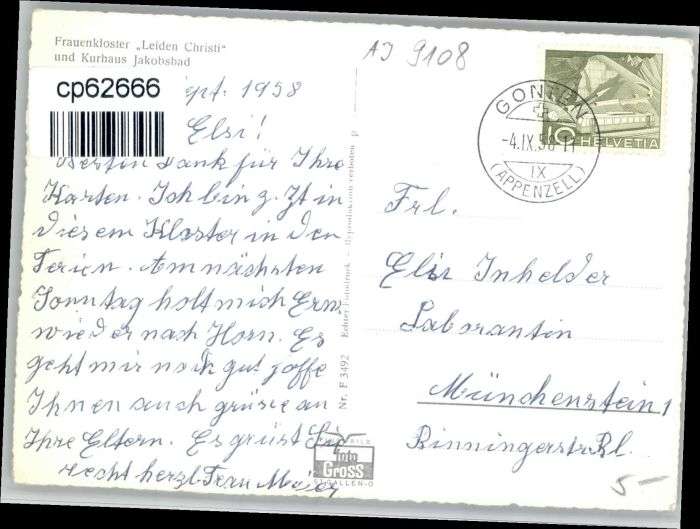 Frauenkloster „Leiden Christi“
und Kurhaus Jakobsbad
AJ 9108
cp62666
ept. 1958
Elsi!
Besten Dank für Ihre
Karten. Ich bin z. Zt in
diesem Kloster in den
Ferien. Am nächsten
Sonntag holt mich Erw.
wieder nach Horn. Es
geht mir noch gut joffe
Ihnen auch grüsse an
Ihre Eltern. Es grüsst Sie
recht herzl. Frau Maier
Nr. F 3492 Echter Fotodruck - Reproduktion verboten
foto
Gross
ST. GALLEN-O
GONTEN
-4.IX.58-11
IX
(APPENZELL)
10
HELVETIA
Frl.
Elsi Inhelder
Laborantin
Münchenstein 1
Binningerstr.
5-